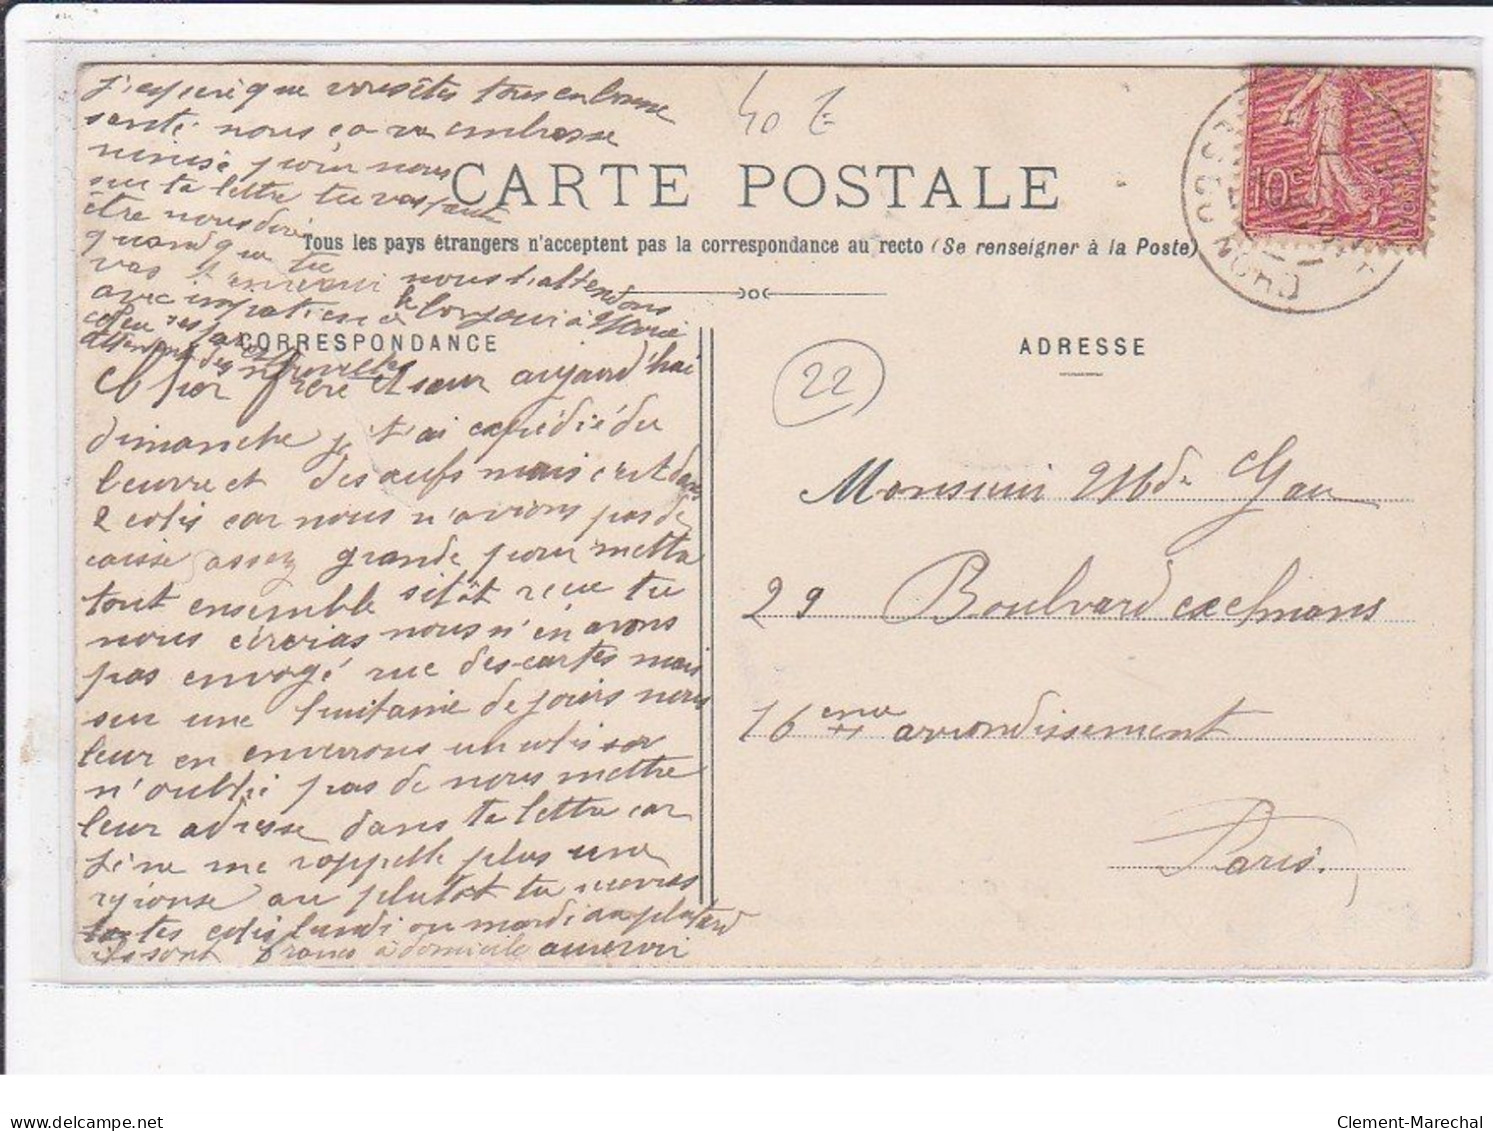 J'espere que vous êtes tous en bonne
santé nous ça va embrasse
ninise pour nous
sur ta lettre tu vas peut
être nous dire
quand que tu
vas nous t'attendons
avec impatience le bonjour à Marie
attendant des nouvelles
40 €
CARTE POSTALE
Tous les pays étrangers n'acceptent pas la correspondance au recto (Se renseigner à la Poste)
CORRESPONDANCE
ADRESSE
10
22
Cher frère et sœur aujourd'hui
dimanche je t'ai expédié du
beurre et des œufs mais c'est dans
2 colis car nous n'avions pas de
caisse assez grande pour mettre
tout ensemble sitôt reçue tu
nous ecriras nous n'en avons
pas envogé rue descartes mais
sur une huitaine de jours nous
leur en enverrons un colis
n'oublie pas de nous mettre
leur adresse dans ta lettre car
je ne me rappelle plus une
reponse au plutot tu recevras
tes colis lundi ou mardi au plutard
ils sont francs à domicile aurevoir
Monsieur Mde Gau
29 Boulvard exelmans
16 eme arrondissement
Paris.
delcampe.net
Clement-Marechal